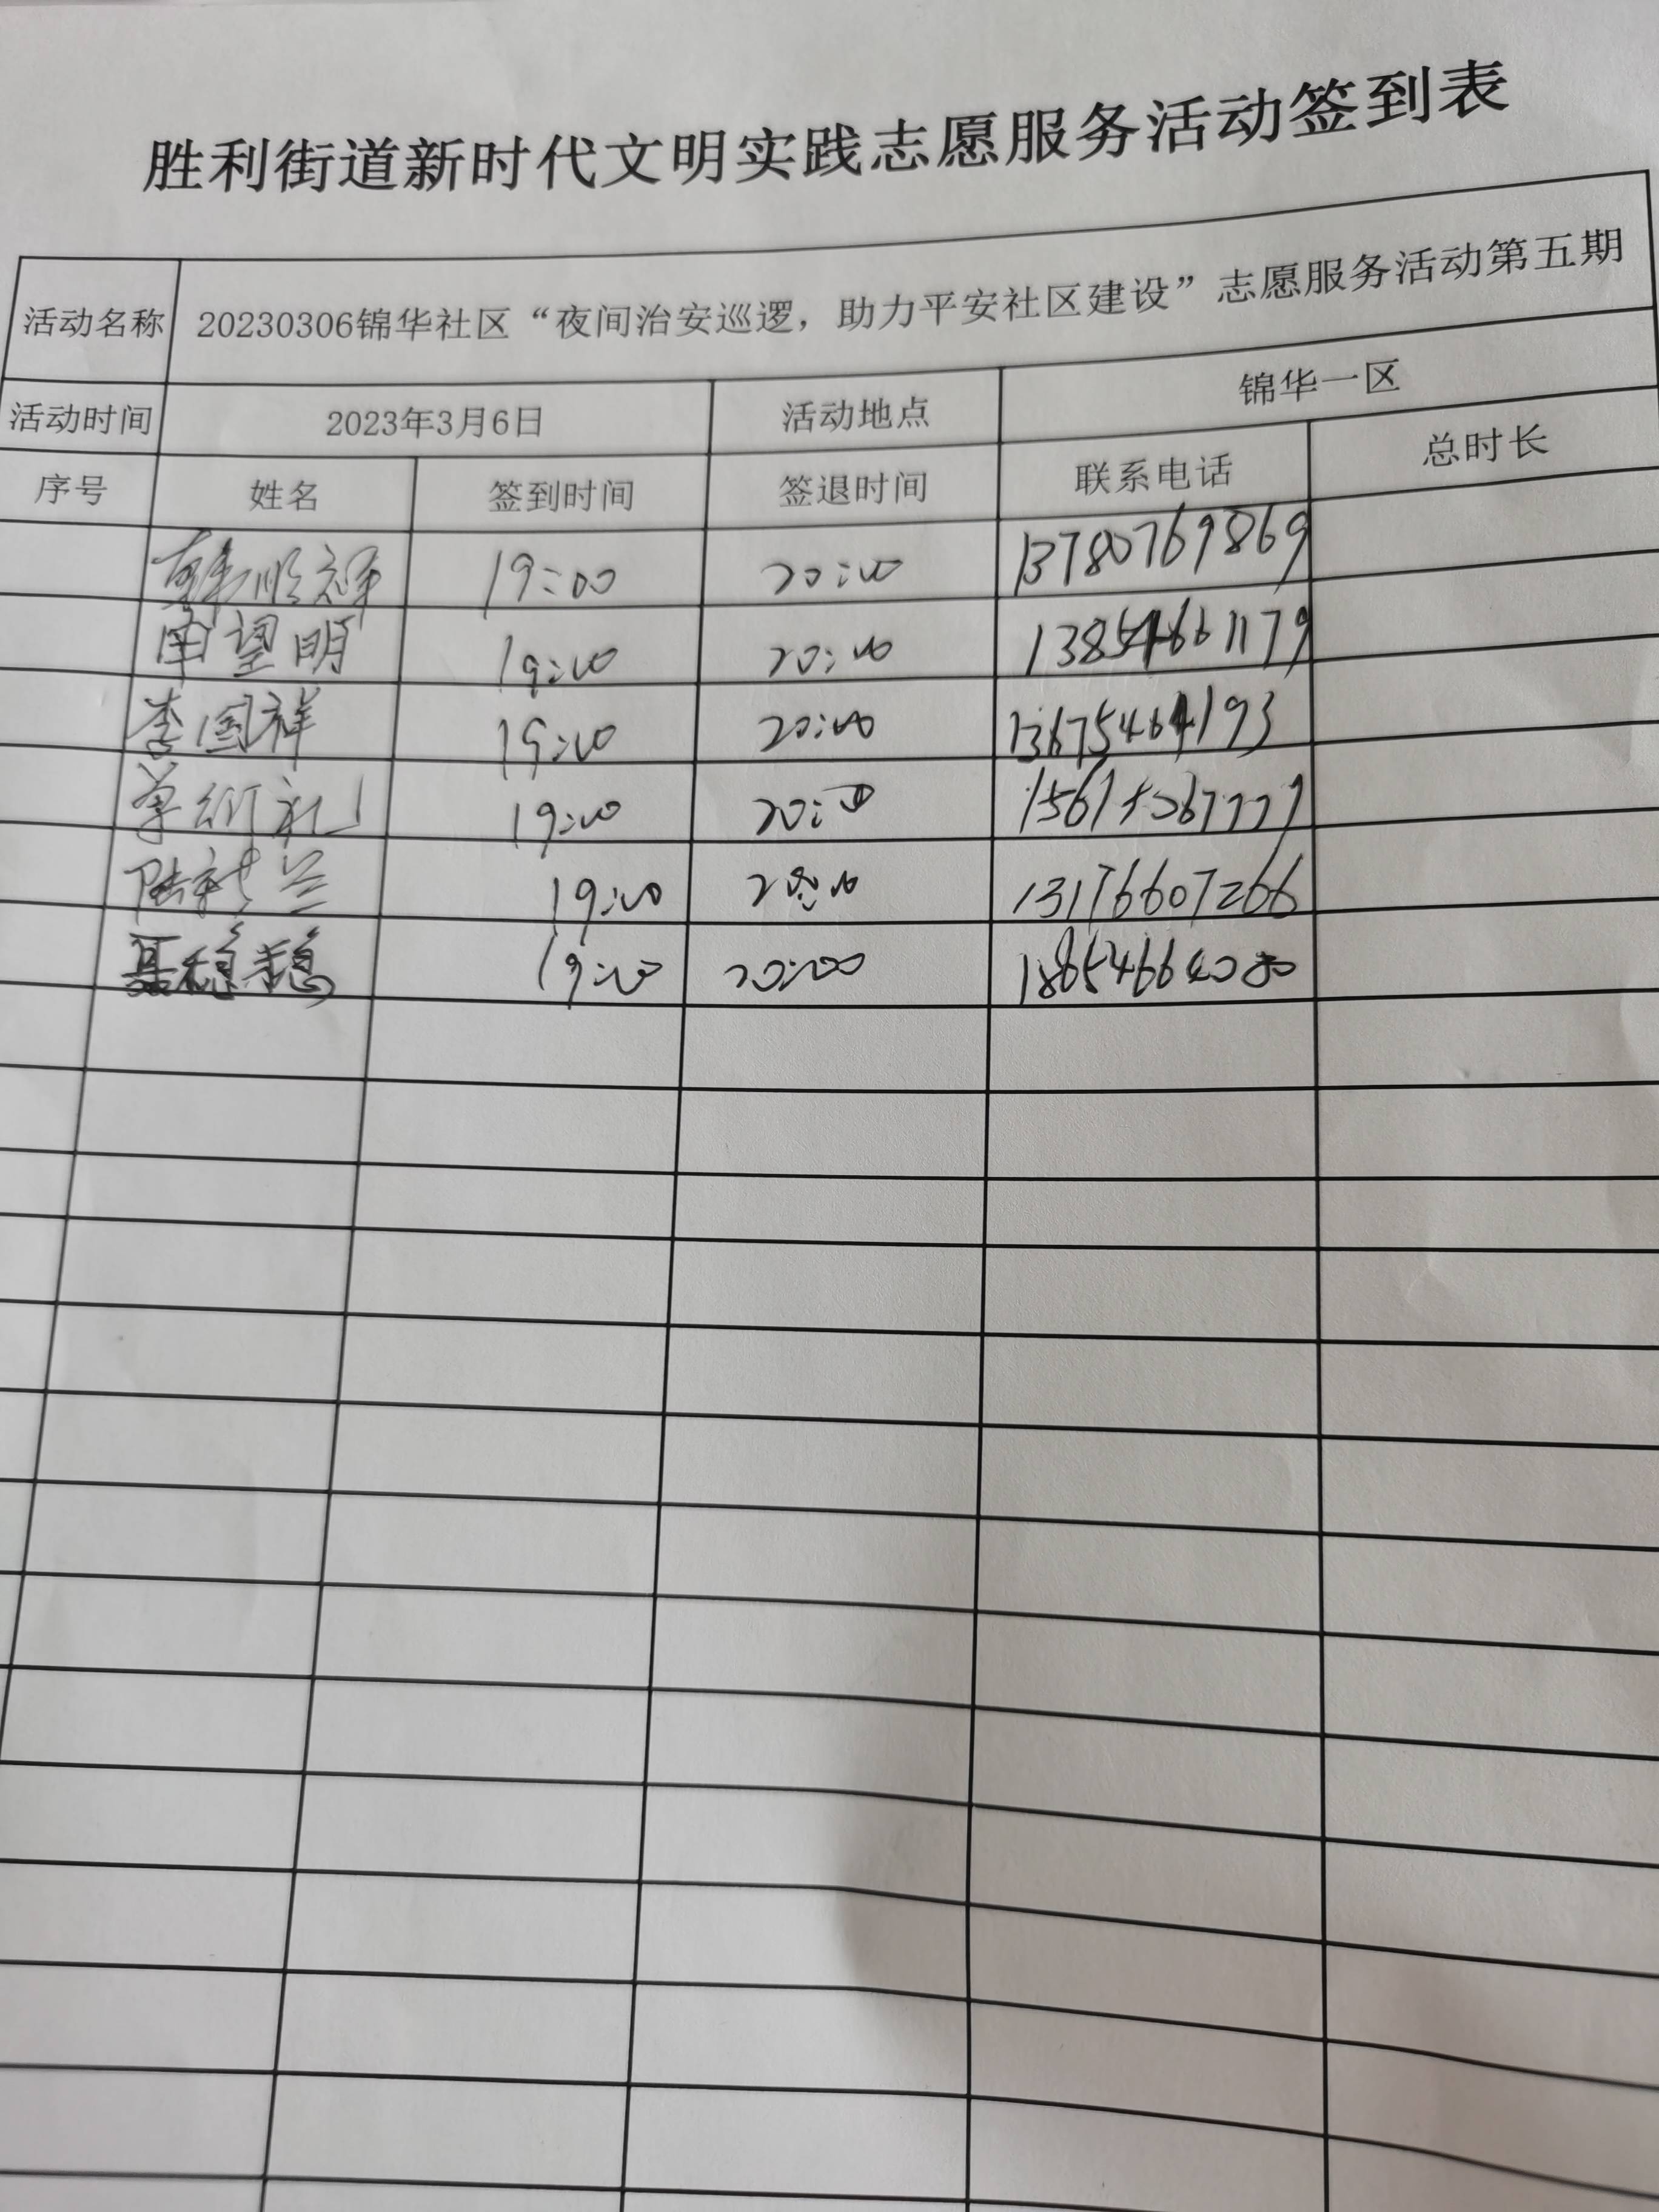 胜利街道新时代文明实践志愿服务活动签到表
活动名称 20230306锦华社区“夜间治安巡逻，助力平安社区建设”志愿服务活动第五期
活动时间 2023年3月6日 活动地点 锦华一区
序号 姓名 签到时间 签退时间 联系电话 总时长
韩顺祥 19:00 20:00 13780769869
南望明 19:00 20:00 13854661179
李国祥 19:00 20:00 13675464193
单衍礼 19:00 20:00
陆秋兰 19:00 20:00 13176607266
聂稳稳 19:00 20:00